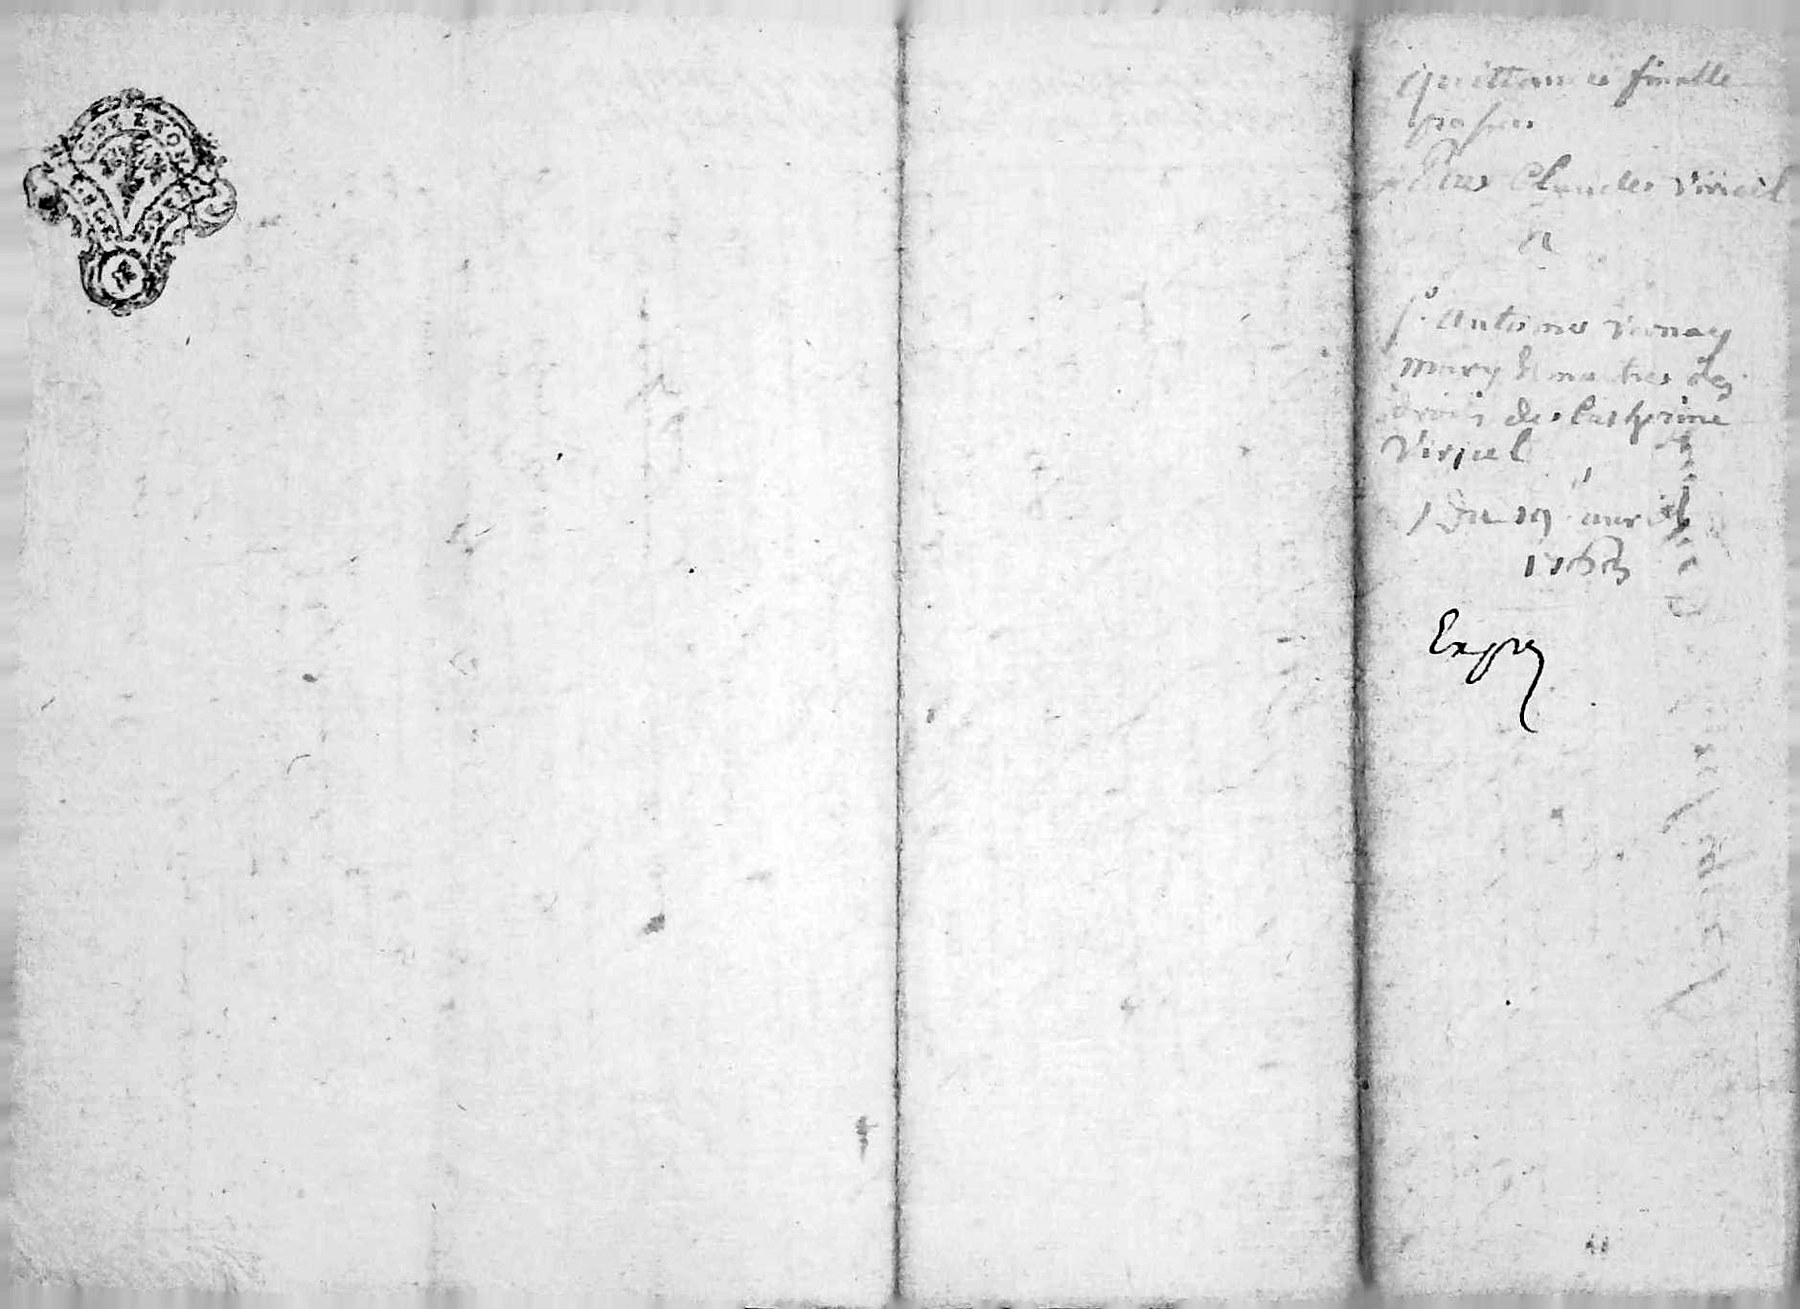 G. DE LYON
quittance finalle
passée
Par Claude Viricel
a
Sr. Antoine Vernay
mary & maitre des
droits de Catherine
Viricel
Du 19 avril
Exp